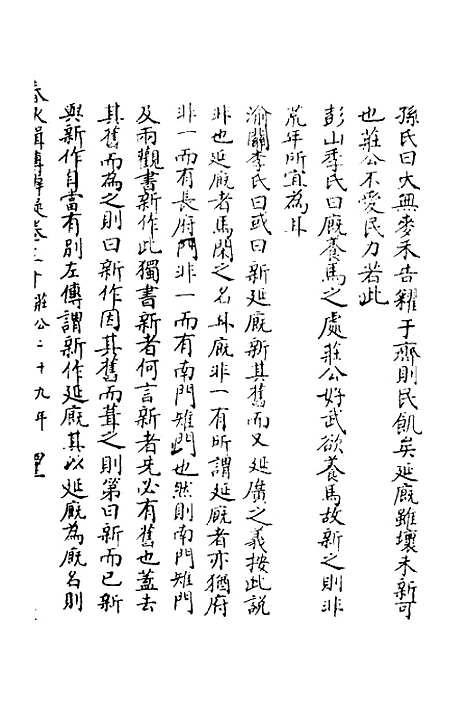 孫氏曰大無麥禾告糴于齊則民飢矣延廐雖壞未新可
也莊公不愛民力若此
彭山季氏曰廐養馬之處莊公好武欲養馬故新之則非
荒年所宜為耳
渝關李氏曰或曰新延廐新其舊而又延廣之義按此說
非也延廐者馬閑之名耳廐非一有所謂延廐者亦猶府
非一而有長府門非一而有南門雉門也然則南門雉門
及兩觀書新作此獨書新者何言新者先必有舊也蓋去
其舊而為之則曰新作因其舊而葺之則第曰新而已新
與新作自當有別左傳謂新作延廐其以延廐為廐名則
春秋輯傳辨疑卷二十莊公二十九年